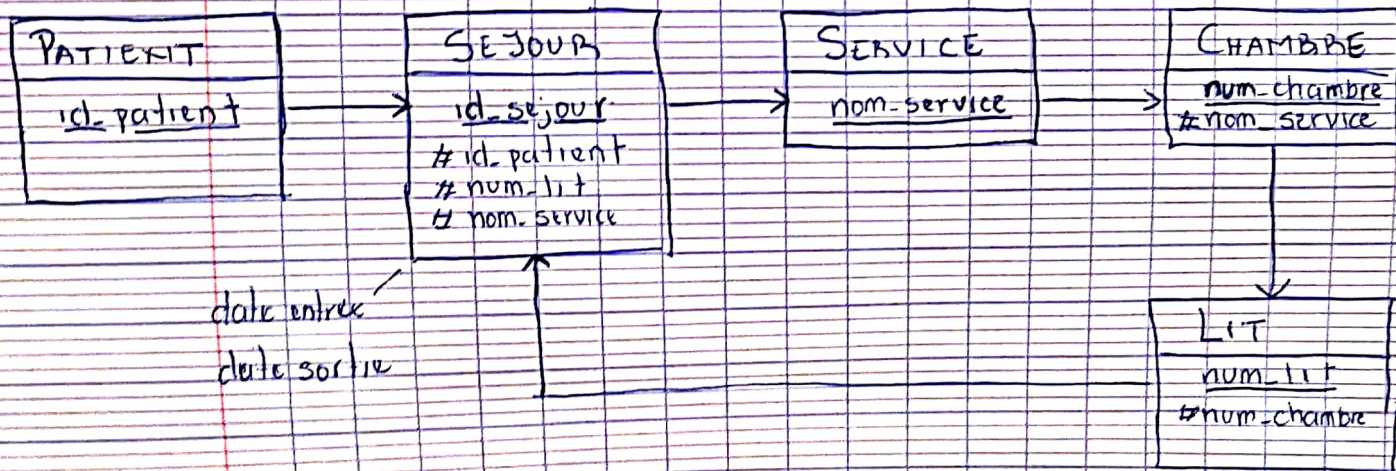 PATIENT
id_patient
SEJOUR
id_sejour
# id_patient
# num_lit
# nom_service
date entree
date sortie
SERVICE
nom_service
CHAMBRE
num_chambre
# nom_service
LIT
num_lit
# num_chambre